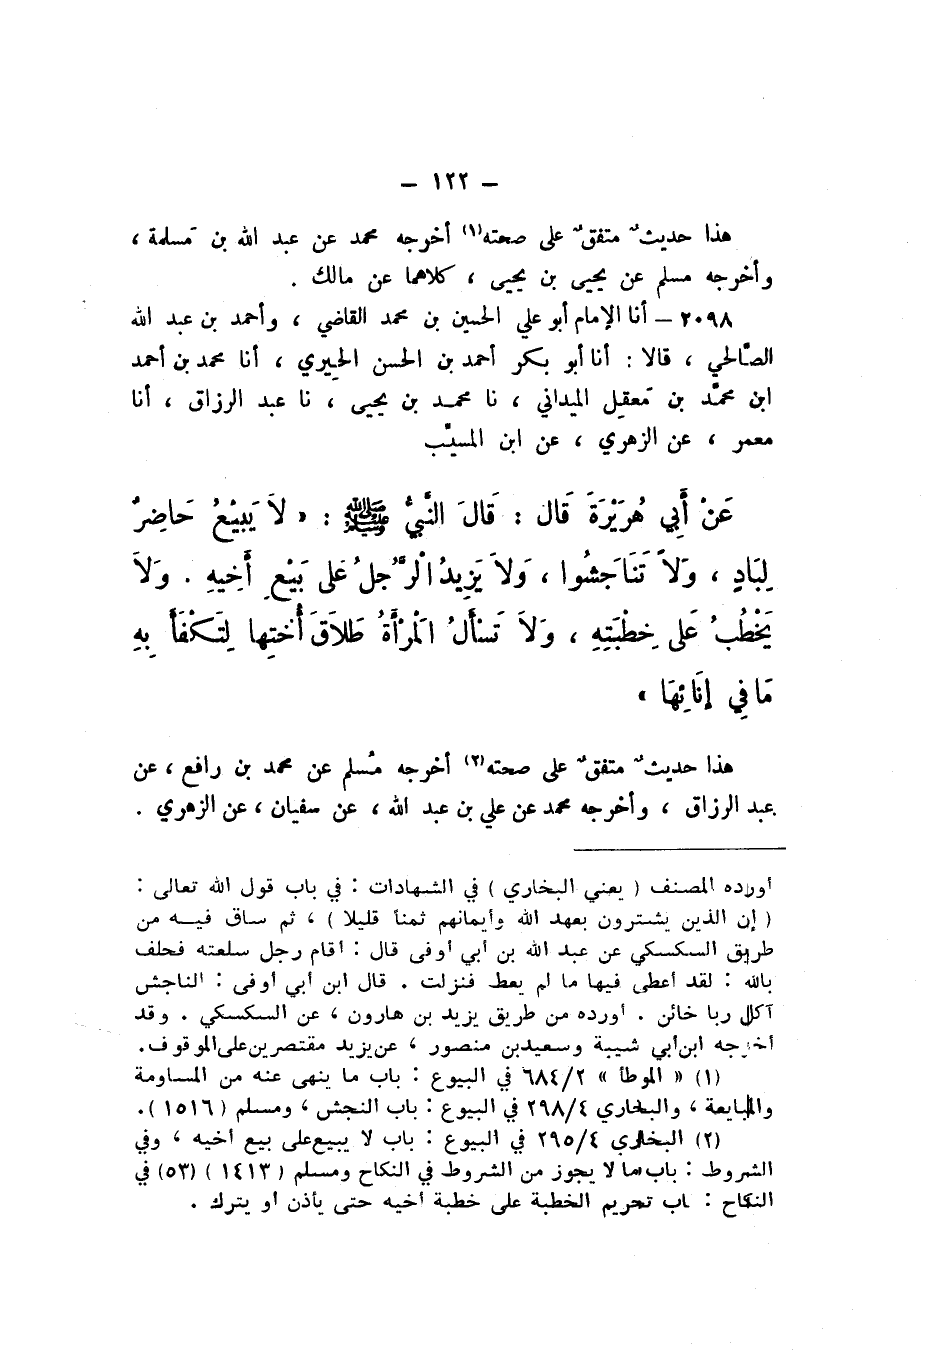 – ١٢٢ –
هذا حديثٌ متفقٌ على صحته(١) أخرجه محمد عن عبد الله بن مَسلمة ،
وأخرجه مسلم عن يحيى بن يحيى ، كلاهما عن مالك .
٢٠٩٨ – أنا الإمام أبو علي الحسين بن محمد القاضي ، وأحمد بن عبد الله
الصّالحي ، قالا : أنا أبو بكر أحمد بن الحسن الحِيري ، أنا محمد بن أحمد
ابن محمّد بن مَعقِل الميداني ، نا محمد بن يحيى ، نا عبد الرزاق ، أنا
معمر ، عن الزهري ، عن ابن المسيّب
عَنْ أَبِي هُرَيْرَةَ قَال : قَالَ النَّبِيُّ ﷺ : « لاَ يَبِيْعُ حَاضِرٌ
لِبَادٍ ، وَلاَ تَنَاجَشُوا ، وَلاَ يَزِيدُ الْرَّجلُ عَلى بَيْعِ أَخِيهِ . وَلاَ
يَخْطُبُ عَلى خِطْبَتِهِ ، وَلاَ تَسْأَلُ الْمَرْأَةُ طَلاَقَ أُختِها لِتَكْفَأَ بِهِ
مَا فِي إِنَائِهَا »
هذا حديثٌ متفقٌ على صحته(٢) أخرجه مُسلم عن محمد بن رافع ، عن
عبد الرزاق ، وأخرجه محمد عن علي بن عبد الله ، عن سفيان ، عن الزهري .
أورده المصنف ( يعني البخاري ) في الشهادات : في باب قول الله تعالى :
( إن الذين يشترون بعهد الله وأيمانهم ثمناً قليلا ) ، ثم ساق فيه من
طريق السكسكي عن عبد الله بن أبي أوفى قال : أقام رجل سلعته فحلف
بالله : لقد أعطى فيها ما لم يعط فنزلت . قال ابن أبي أوفى : الناجش
آكل ربا خائن . أورده من طريق يزيد بن هارون ، عن السكسكي . وقد
أخرجه ابن أبي شيبة وسعيد بن منصور ، عن يزيد مقتصرين على الموقوف .
(١) « الموطأ » ٦٨٤/٢ في البيوع : باب ما ينهى عنه من المساومة
والمبايعة ، والبخاري ٢٩٨/٤ في البيوع : باب النجش ، ومسلم ( ١٥١٦ ) .
(٢) البخاري ٢٩٥/٤ في البيوع : باب لا يبيع على بيع أخيه ، وفي
الشروط : باب ما لا يجوز من الشروط في النكاح ومسلم ( ١٤١٣ ) (٥٣) في
النكاح : باب تحريم الخطبة على خطبة أخيه حتى يأذن أو يترك .